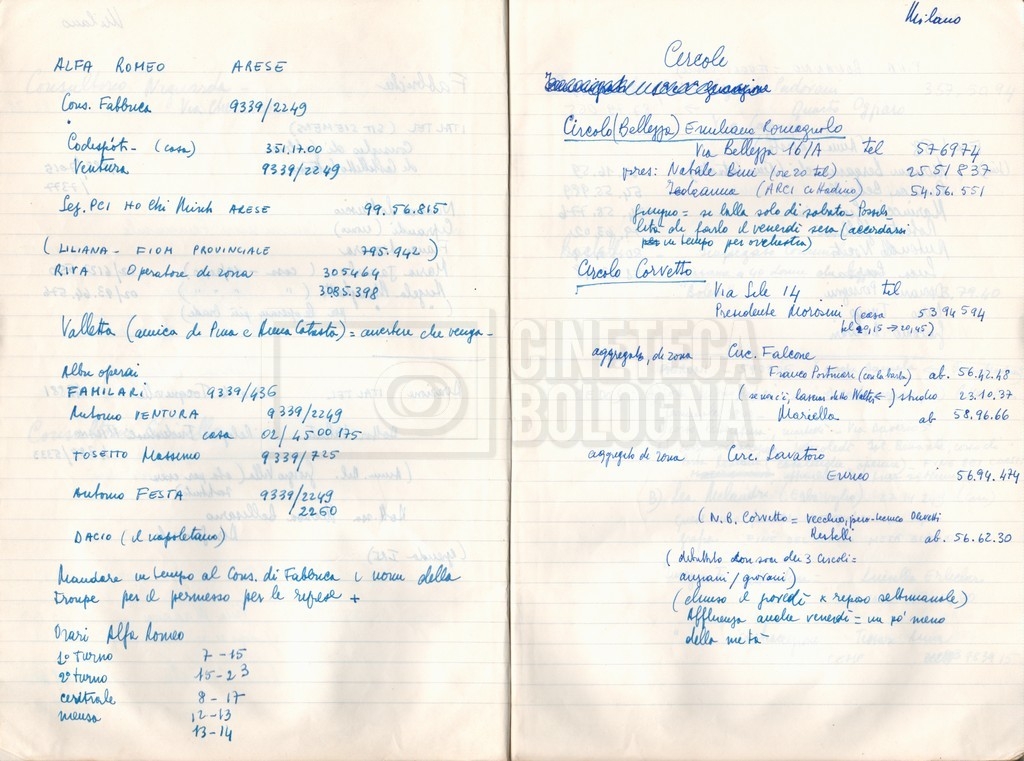 ALFA ROMEO ARESE
Cons. Fabbrica 9339/2249
(casa) 351.17.00
Ventura 9339/2249
Seg. PCI HO Chi Minh ARESE 99.56.815
(LILIANA - FIOM PROVINCIALE 795.942)
RIVA Operatore di zona 305464
3085.398
Valletta (amica di Pina e Anna) = avvertire che vengo -
Altri operai
FAMILARI 9339/436
Antonio VENTURA 9339/2249
casa 02/4500175
TOSETTO Massimo 9339/725
Antonio FESTA 9339/2249
2260
DACIO (il napoletano)
Mandare in tempo al Cons. di Fabbrica i nomi della
troupe per il permesso per le riprese +
Orari Alfa Romeo
1° turno 7 - 15
2° turno 15 - 23
centrale 8 - 17
mensa 12 - 13
13 - 14
Milano
Circoli
Circolo (Bellezza) Emiliano Romagnolo
Via Bellezza 16/A tel 576974
pres: Natale Bini (ore 20 tel) 2551837
(ARCI cittadino) 54.56.551
giugno = si balla solo di sabato. Possibi
lità di farlo il venerdì sera (accordarsi
in tempo per orchestra)
Circolo Corvetto
Via Sile 14 tel
Presidente Morosini (casa 5394594
tel 20,15 → 20,45)
aggregato, di zona Circ. Falcone
Franco Portinari (con la barba) ab. 56.42.48
(se non c'è, lasciar detto Walter) studio 23.10.37
Mariella ab 58.96.66
aggregato di zona Circ. Lavatoio
Enrico 56.94.474
(N.B. Corvetto = vecchio, Olivetti
Restelli ab. 56.62.30
(dibattito con soci dei 3 circoli =
anziani / giovani)
(chiuso il giovedì x riposo settimanale)
Affluenza anche venerdì = un po' meno
della metà
CINETECA
BOLOGNA